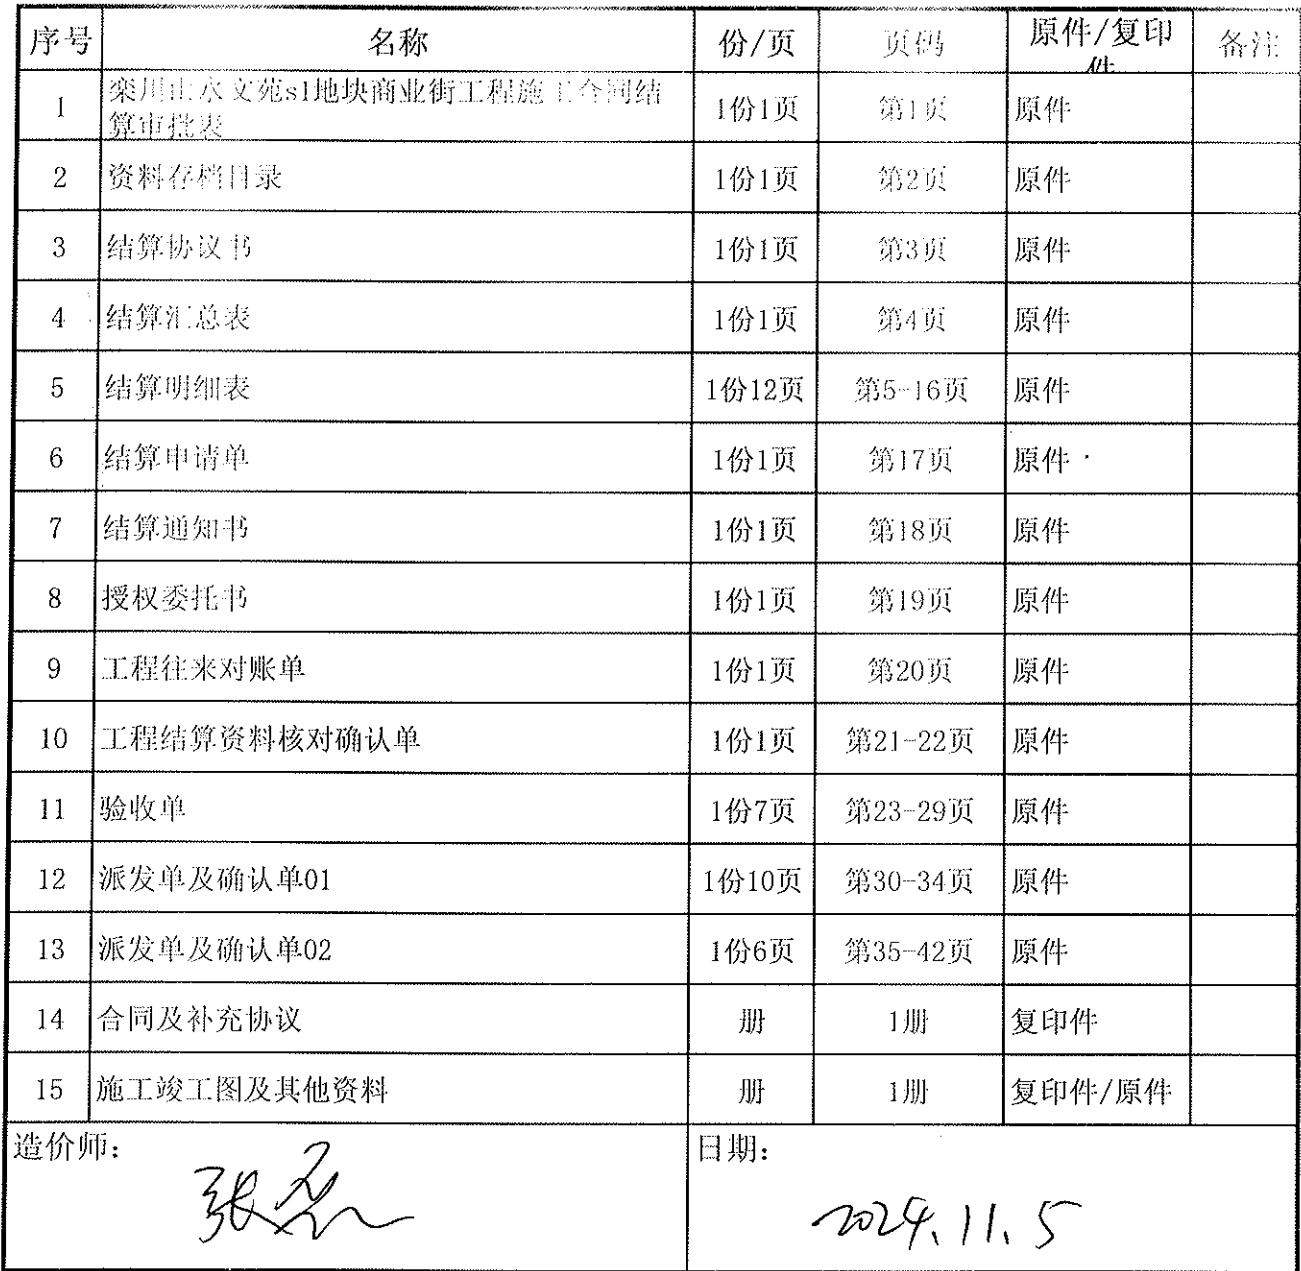 序号 名称 份/页 页码 原件/复印件 备注
1 栾川山水文苑s1地块商业街工程施工合同结 1份1页 第1页 原件
算审批表
2 资料存档目录 1份1页 第2页 原件
3 结算协议书 1份1页 第3页 原件
4 结算汇总表 1份1页 第4页 原件
5 结算明细表 1份12页 第5-16页 原件
6 结算申请单 1份1页 第17页 原件
7 结算通知书 1份1页 第18页 原件
8 授权委托书 1份1页 第19页 原件
9 工程往来对账单 1份1页 第20页 原件
10 工程结算资料核对确认单 1份1页 第21-22页 原件
11 验收单 1份7页 第23-29页 原件
12 派发单及确认单01 1份10页 第30-34页 原件
13 派发单及确认单02 1份6页 第35-42页 原件
14 合同及补充协议 册 1册 复印件
15 施工竣工图及其他资料 册 1册 复印件/原件
造价师： 日期：
张磊 2024.11.5